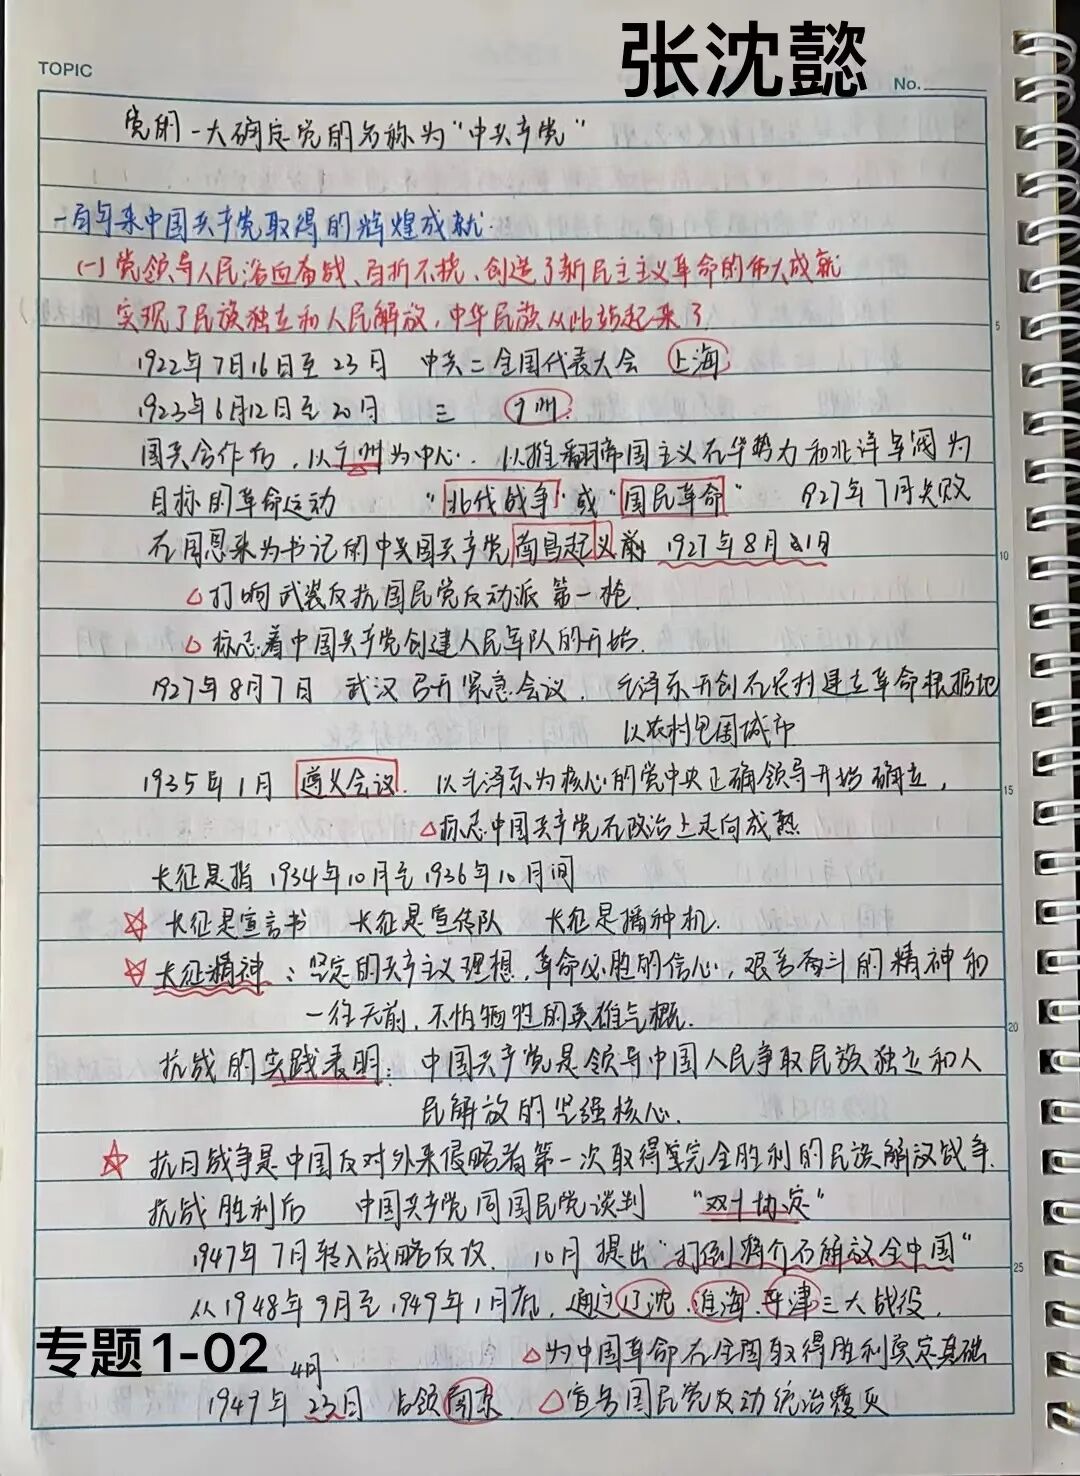 张沈懿
TOPIC
No.
党的一大确定党的名称为“中共产党”
一百年来中国共产党取得的辉煌成就.
(一)党领导人民浴血奋战、百折不挠、创造了新民主主义革命的伟大成就
实现了民族独立和人民解放,中华民族从此站起来了
1922年7月16日至23日 中共二全国代表大会 上海
1923年6月12日至20日 三 广州.
国共合作后,以广州为中心. 以推翻帝国主义在华势力和北洋军阀为
目标的革命运动 “北伐战争”或“国民革命” 1927年7月失败
5
在周恩来为书记的中共国共产党南昌起义前 1927年8月1日
10
△打响武装反抗国民党反动派第一枪.
△标志着中国共产党创建人民军队的开始.
1927年8月7日 武汉召开紧急会议. 毛泽东开创在农村建立革命根据地
以农村包围城市
1935年1月 遵义会议. 以毛泽东为核心的党中央正确领导开始确立,
15
△标志中国共产党在政治上走向成熟
长征是指1934年10月至1936年10月间
☆ 长征是宣言书 长征是宣传队 长征是播种机.
☆ 长征精神:坚定的共产主义理想,革命必胜的信心,艰苦奋斗的精神和
一往无前,不怕牺牲的英雄气概.
20
抗战的实践表明:中国共产党是领导中国人民争取民族独立和人
民解放的坚强核心.
☆ 抗日战争是中国反对外来侵略者第一次取得完全胜利的民族解放战争.
抗战胜利后 中国共产党同国民党谈判 “双十协定”
1947年7月转入战略反攻. 10月提出“打倒蒋介石解放全中国”
25
从1948年9月至1949年1月底,通过辽沈、淮海、平津三大战役,
专题1-02
△为中国革命在全国取得胜利奠定基础
1949年4月23日 占领南京. △宣告国民党反动统治覆灭